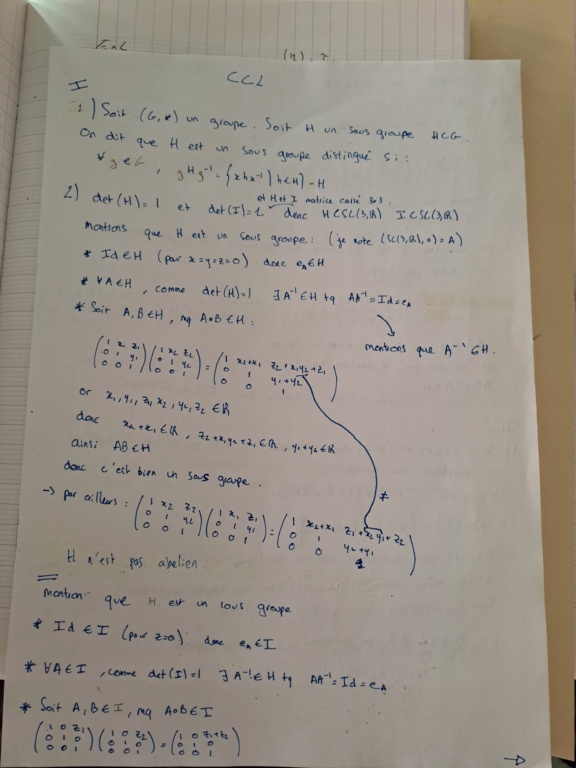 CCL
I
1) Soit (G, *) un groupe. Soit H un sous groupe H⊂G.
On dit que H est un sous groupe distingué si :
∀ g ∈ G , gHg⁻¹ = {xhx⁻¹ | h∈H} = H
et H et I matrice carré 3x3
2) det(H)=1 et det(I)=1 donc H⊂SL(3,ℝ) I⊂SL(3,ℝ)
montrons que H est un sous groupe : (je note (SL(3,ℝ), •) = A)
* Id∈H (pour x=y=z=0) donc e_A∈H
* ∀A∈H , comme det(H)=1 ∃A⁻¹∈H tq AA⁻¹=Id=e_A
* Soit A,B∈H , mq A•B∈H :
montrons que A⁻¹∈H.
(1 x₁ z₁ / 0 1 y₁ / 0 0 1) (1 x₂ z₂ / 0 1 y₂ / 0 0 1) = (1 x₂+x₁ z₂+x₁y₂+z₁ / 0 1 y₁+y₂ / 0 0 1)
or x₁, y₁, z₁, x₂, y₂, z₂ ∈ℝ
donc x₂+x₁∈ℝ , z₂+x₁y₂+z₁∈ℝ , y₁+y₂∈ℝ
ainsi AB∈H
donc c'est bien un sous groupe.
≠
→ par ailleurs : (1 x₂ z₂ / 0 1 y₂ / 0 0 1) (1 x₁ z₁ / 0 1 y₁ / 0 0 1) = (1 x₂+x₁ z₁+x₂y₁+z₂ / 0 1 y₂+y₁ / 0 0 1)
H n'est pas abelien
montron que H est un sous groupe
* Id ∈ I (pour z=0) donc e_A∈I
* ∀A∈I , comme det(I)=1 ∃ A⁻¹∈H tq AA⁻¹=Id=e_A
* Soit A,B∈I , mq A•B∈I
(1 0 z₁ / 0 1 0 / 0 0 1) (1 0 z₂ / 0 1 0 / 0 0 1) = (1 0 z₁+z₂ / 0 1 0 / 0 0 1)
→